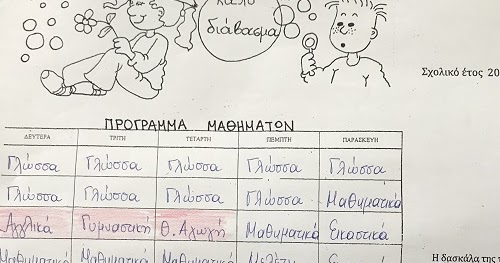 καλό
διάβασμα
Σχολικό έτος 20
ΠΡΟΓΡΑΜΜΑ ΜΑΘΗΜΑΤΩΝ
ΔΕΥΤΕΡΑ ΤΡΙΤΗ ΤΕΤΑΡΤΗ ΠΕΜΠΤΗ ΠΑΡΑΣΚΕΥΗ
Γλώσσα Γλώσσα Γλώσσα Γλώσσα Γλώσσα
Γλώσσα Γλώσσα Γλώσσα Γλώσσα Μαθηματικά
Αγγλικά Γυμναστική Θ. Αγωγή Μαθηματικά Εικαστικά
Μαθηματικά Μαθηματικά Μαθηματικά
Η δασκάλα της